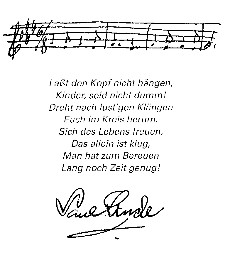 Laßt den Kopf nicht hängen,
Kinder, seid nicht dumm!
Dreht nach lust'gen Klängen
Euch im Kreis herum.
Sich des Lebens freuen,
Das allein ist klug,
Man hat zum Bereuen
Lang noch Zeit genug!
Paul Lincke